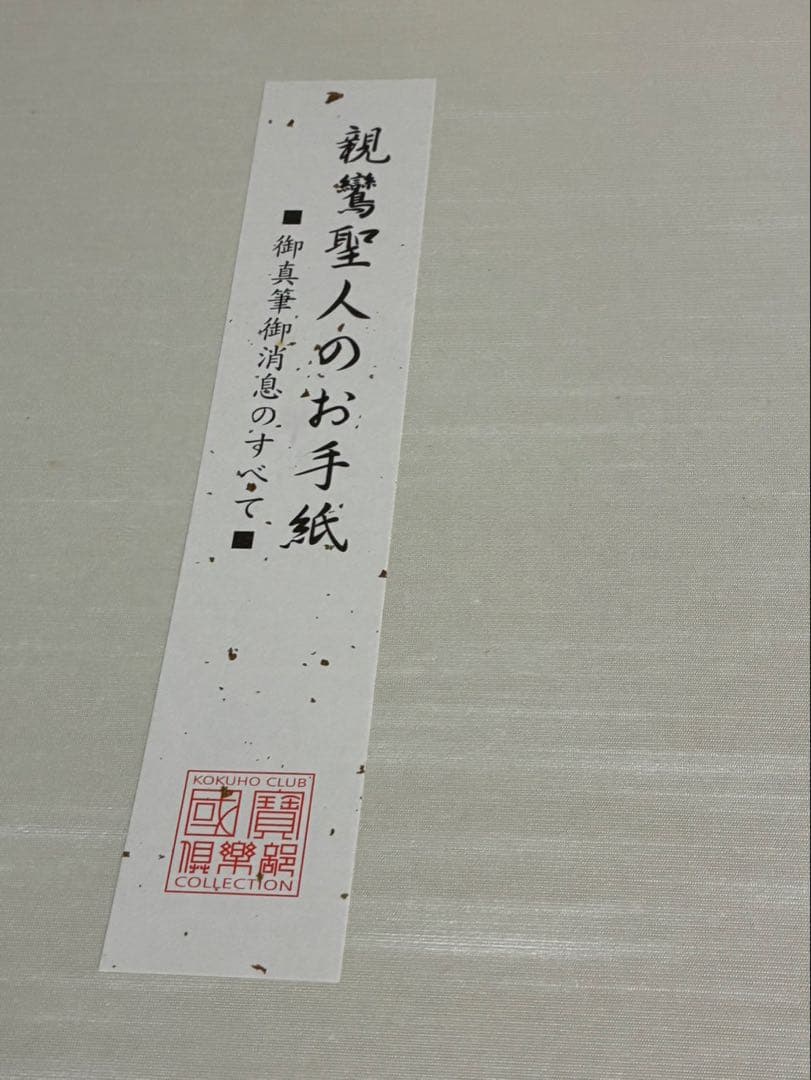 親鸞聖人のお手紙
■御真筆御消息のすべて■
KOKUHO CLUB
國寶
俱樂部
COLLECTION